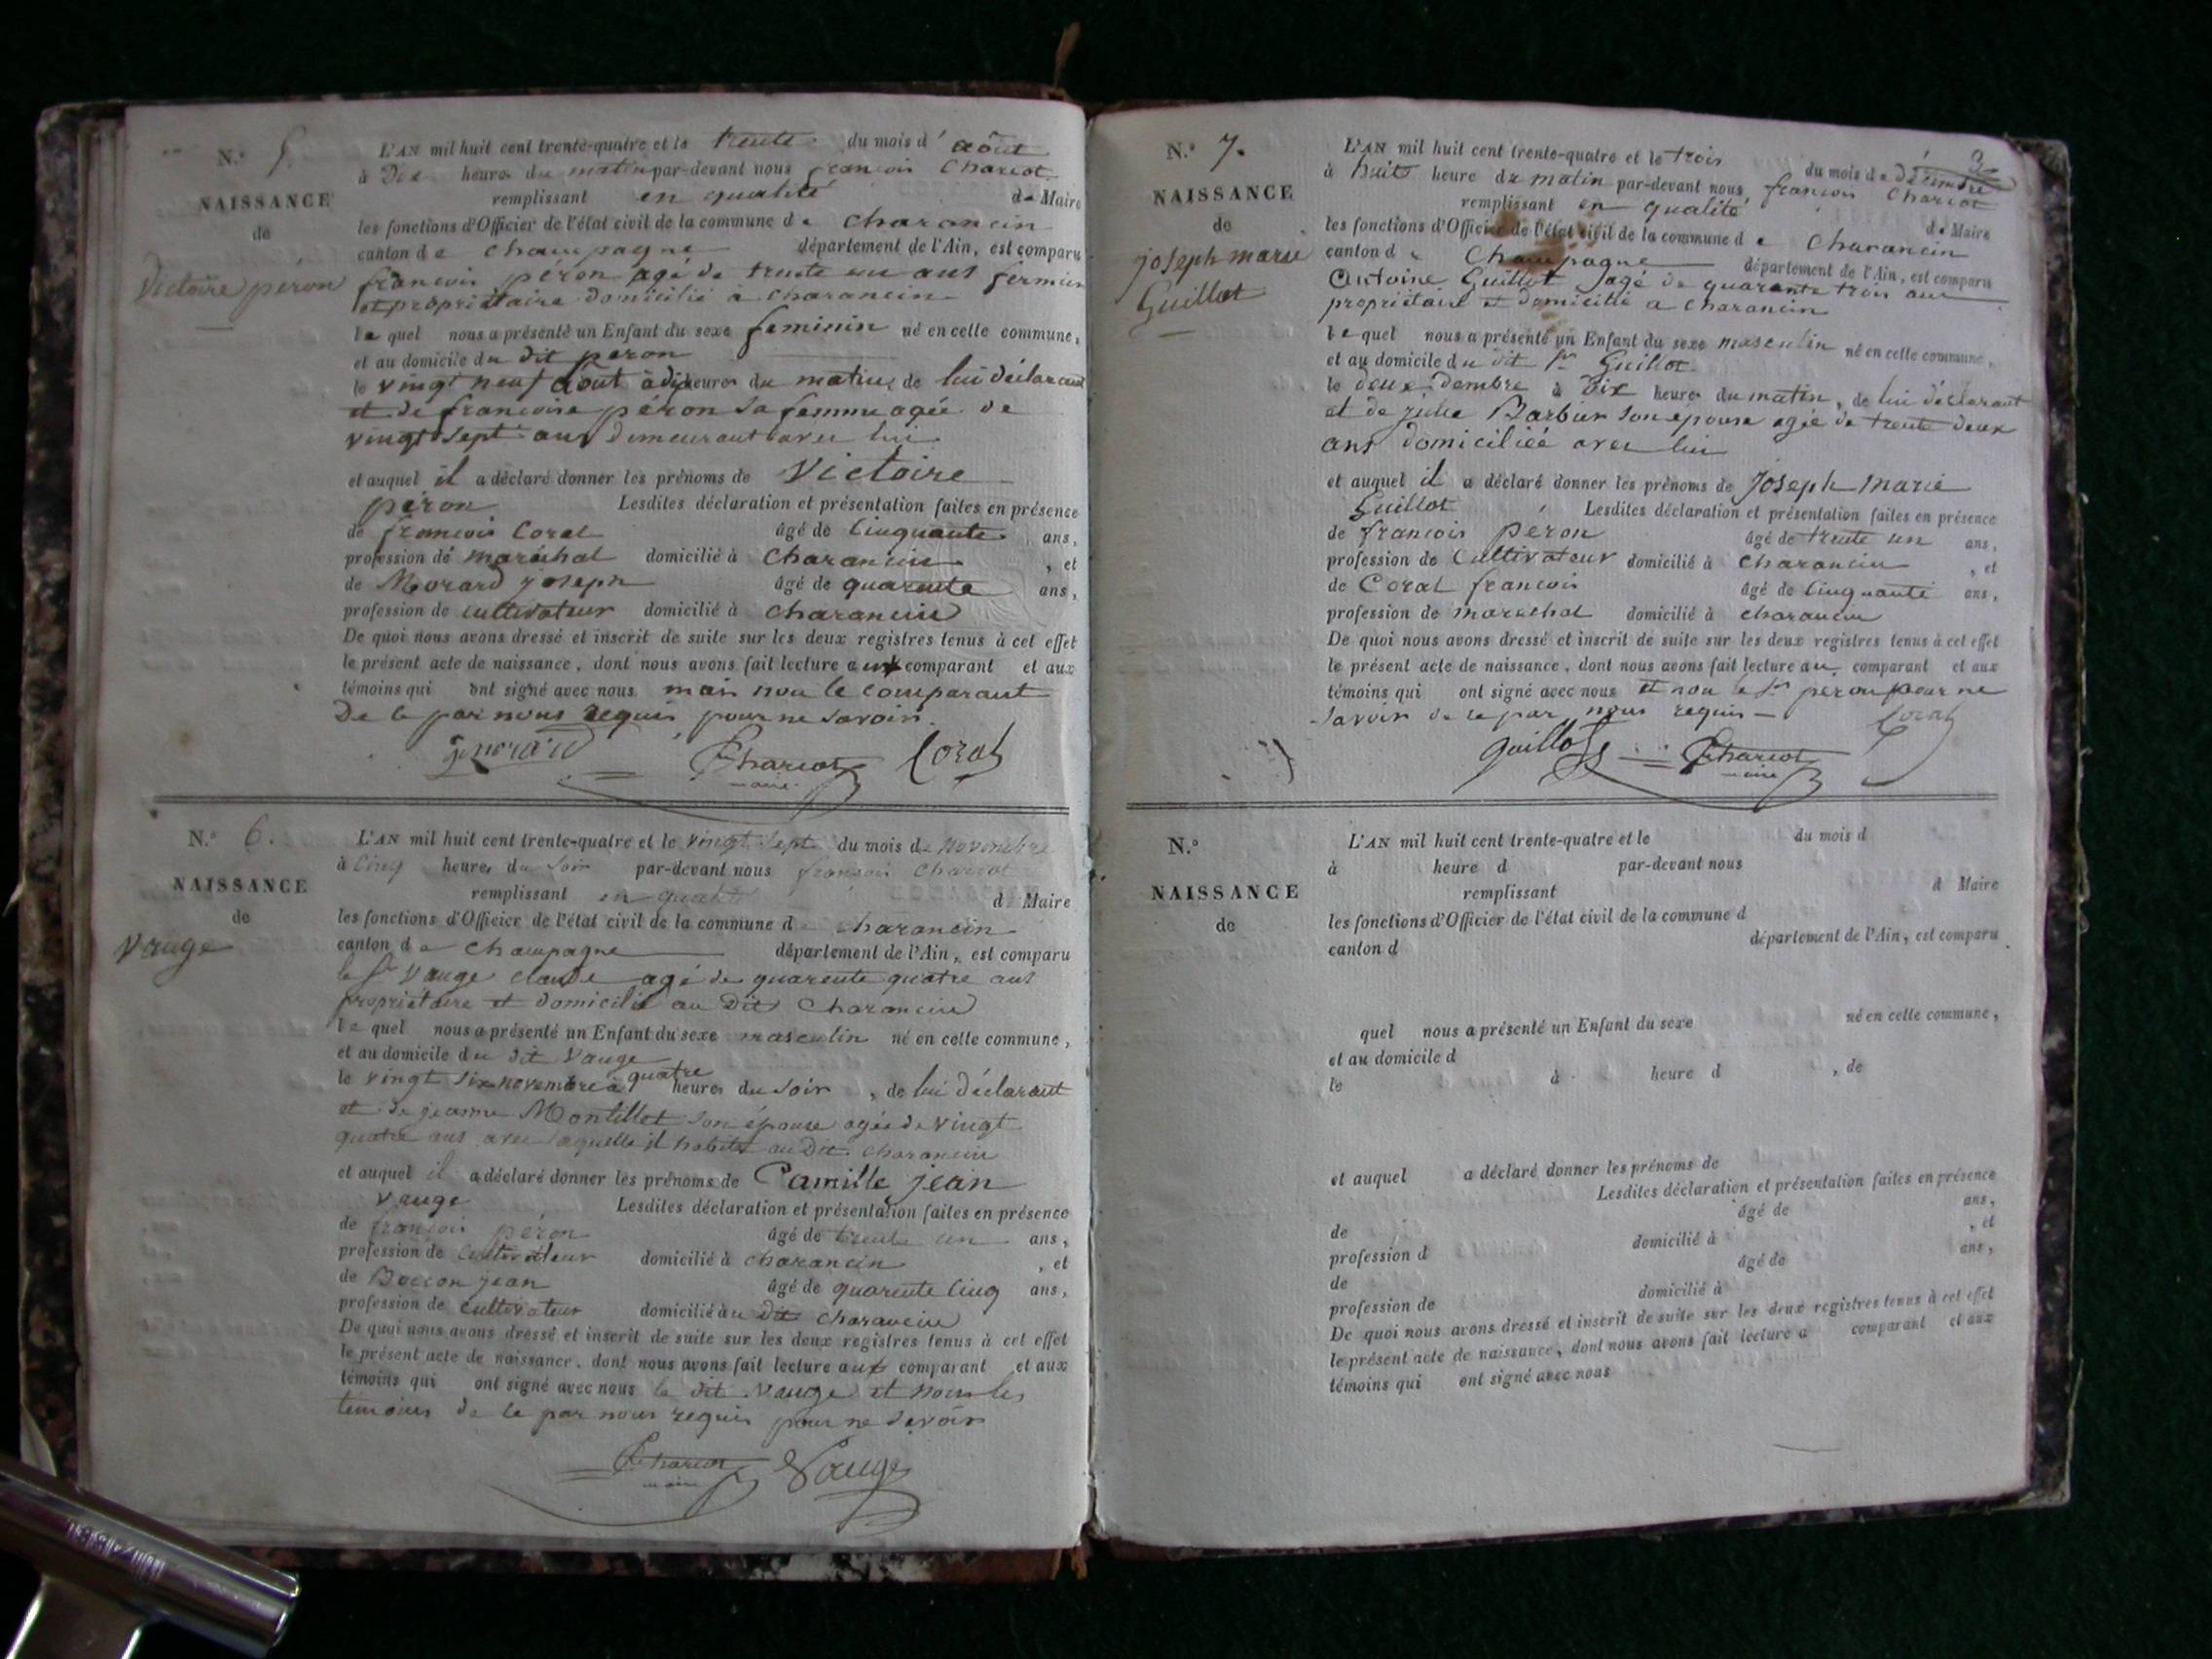 N.° 5.
NAISSANCE
de
Victoire péron
L'AN mil huit cent trente-quatre et le trente du mois d' août
à Dix heures du matin par-devant nous françois Chariot
remplissant en qualité de Maire
les fonctions d'Officier de l'état civil de la commune de charancin
canton de champagne département de l'Ain, est comparu
françois péron agé de trente un ans fermier
et propriétaire domicilié à charancin
le quel nous a présenté un Enfant du sexe feminin né en celle commune,
et au domicile du dit peron
le vingt neuf août à dix heures du matin, de lui déclarant
et de françoise péron sa femme agée de
vingt sept ans demeurant avec lui
et auquel il a déclaré donner les prénoms de Victoire
péron Lesdites déclaration et présentation faites en présence
de françois Coral âgé de Cinquante ans,
profession de maréchal domicilié à Charancin , et
de Morard joseph âgé de quarente ans,
profession de cultivateur domicilié à Charancin
De quoi nous avons dressé et inscrit de suite sur les deux registres tenus à cet effet
le présent acte de naissance, dont nous avons fait lecture aux comparant et aux
témoins qui ont signé avec nous mais non le comparant
De ce par nous requis pour ne savoir.
jmorard Chariot Coral
maire
N.° 6.
NAISSANCE
de
Vauge
L'AN mil huit cent trente-quatre et le vingt sept du mois de novembre
à Cinq heures du soir par-devant nous françois Chariot
remplissant en qualité de Maire
les fonctions d'Officier de l'état civil de la commune de charancin
canton de Champagne département de l'Ain, est comparu
le Sr Vauge claude agé de quarente quatre ans
propriétaire et domicilié au Dit Charancin
le quel nous a présenté un Enfant du sexe masculin né en celle commune,
et au domicile du dit Vauge
le vingt six novembre à quatre heures du soir , de lui déclarant
et de jeanne Montillet son épouse agée de vingt
quatre ans avec laquelle il habite au Dit charancin
et auquel il a déclaré donner les prénoms de Camille jean
Vauge Lesdites déclaration et présentation faites en présence
de françois péron âgé de trente un ans,
profession de cultivateur domicilié à charancin , et
de Boccon jean âgé de quarente cinq ans,
profession de cultivateur domicilié au dit charancin
De quoi nous avons dressé et inscrit de suite sur les deux registres tenus à cet effet
le présent acte de naissance, dont nous avons fait lecture aux comparant et aux
témoins qui ont signé avec nous le dit Vauge et non les
temoins de ce par nous requis pour ne savoir
Chariot Vauge
maire
3
N.° 7.
NAISSANCE
de
joseph marie
Guillot
L'AN mil huit cent trente-quatre et le trois du mois de décembre
à huit heure du matin par-devant nous françois Chariot
remplissant en qualité de Maire
les fonctions d'Officier de l'état civil de la commune de Charancin
canton de Champagne département de l'Ain, est comparu
Antoine Guillot agé de quarante trois ans
propriétaire et domicilié à charancin
le quel nous a présenté un Enfant du sexe masculin né en celle commune,
et au domicile du dit Sr Guillot
le deux dembre à Dix heures du matin, de lui déclarant
et de julie Barbier son epouse agée de trente deux
ans domiciliée avec lui
et auquel il a déclaré donner les prénoms de Joseph marie
Guillot Lesdites déclaration et présentation faites en présence
de francois péron âgé de trente un ans,
profession de Cultivateur domicilié à charancin , et
de Coral francois âgé de Cinquante ans,
profession de marechal domicilié à charancin
De quoi nous avons dressé et inscrit de suite sur les deux registres tenus à cet effet
le présent acte de naissance, dont nous avons fait lecture au comparant et aux
témoins qui ont signé avec nous et non le Sr péron pour ne
savoir de ce par nous requis Coral
Guillot Chariot
maire
N.°
NAISSANCE
de
L'AN mil huit cent trente-quatre et le du mois d
à heure d par-devant nous
remplissant d Maire
les fonctions d'Officier de l'état civil de la commune d
canton d département de l'Ain, est comparu
quel nous a présenté un Enfant du sexe né en celle commune,
et au domicile d
le à heure d , de
et auquel a déclaré donner les prénoms de
Lesdites déclaration et présentation faites en présence
de âgé de ans,
profession d domicilié à , et
de âgé de ans,
profession de domicilié à
De quoi nous avons dressé et inscrit de suite sur les deux registres tenus à cet effet
le présent acte de naissance, dont nous avons fait lecture a comparant et aux
témoins qui ont signé avec nous